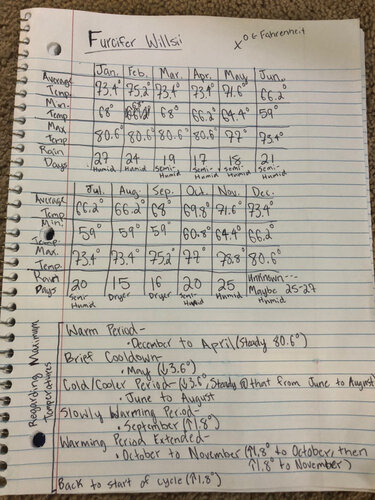 Furcifer Willsii
x° = Fahrenheit
Jan. Feb. Mar. Apr. May Jun.
Average Temp. 73.4° 75.2° 73.4° 73.4° 71.6° 66.2°
Min. Temp 68° 68° 66.2° 68° 66.2° 64.4° 59°
Max Temp 80.6° 80.6° 80.6° 80.6° 77° 73.4°
Rain Days 27 24 19 17 18 21
Humid Humid Semi-Humid Semi-Humid Semi-Humid Semi-Humid
Jul. Aug. Sep. Oct. Nov. Dec.
Average Temp 66.2° 66.2° 68° 69.8° 71.6° 73.4°
Min. Temp. 59° 59° 59° 60.8° 64.4° 66.2°
Max. Temp. 73.4° 73.4° 75.2° 77° 78.8° 80.6°
Rain Days 20 15 16 20 25 Unknown--- Maybe 25-27
Semi-Humid Dryer Dryer Semi-Humid Humid Humid
Regarding Maximum Temperatures
Warm Period-
• December to April (Steady 80.6°)
Brief Cooldown-
• May (↓3.6°)
Cold/Cooler Period- (↓3.6°, Steady @ that from June to August)
• June to August
Slowly Warming Period-
• September (↑1.8°)
Warming Period Extended-
• October to November (↑1.8° to October, then
↑1.8° to November)
Back to start of cycle (↑1.8°)